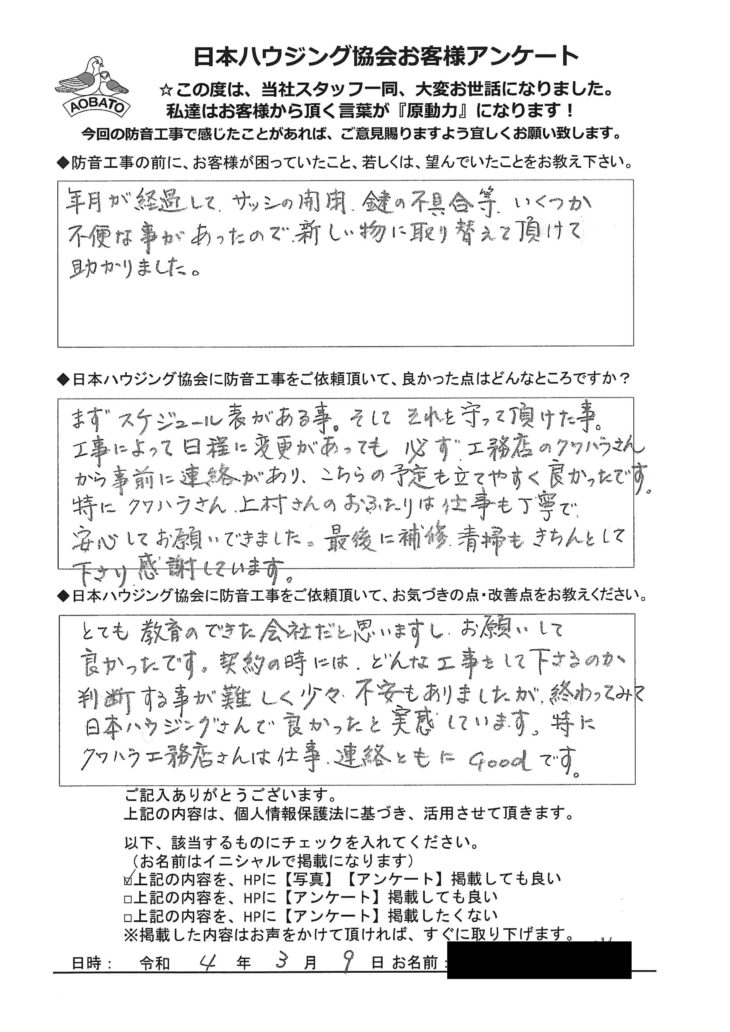 日本ハウジング協会お客様アンケート
AOBATO
☆この度は、当社スタッフ一同、大変お世話になりました。
私達はお客様から頂く言葉が『原動力』になります！
今回の防音工事で感じたことがあれば、ご意見賜りますよう宜しくお願い致します。
◆防音工事の前に、お客様が困っていたこと、若しくは、望んでいたことをお教え下さい。
年月が経過して、サッシの開閉、鍵の不具合等、いくつか
不便な事があったので、新しい物に取り替えて頂けて
助かりました。
◆日本ハウジング協会に防音工事をご依頼頂いて、良かった点はどんなところですか？
まずスケジュール表がある事。そしてそれを守って頂けた事。
工事によって日程に変更があっても必ず工務店のクワハラさん
から事前に連絡があり、こちらの予定も立てやすく良かったです。
特にクワハラさん、上村さんのおふたりは仕事も丁寧で、
安心してお願いできました。最後に補修、清掃もきちんとして
下さり感謝しています。
◆日本ハウジング協会に防音工事をご依頼頂いて、お気づきの点・改善点をお教えください。
とても教育のできた会社だと思いますし、お願いして
良かったです。契約の時には、どんな工事をして下さるのか
判断する事が難しく少々、不安もありましたが、終わってみて
日本ハウジングさんで良かったと実感しています。特に
クワハラ工務店さんは仕事、連絡ともにGoodです。
ご記入ありがとうございます。
上記の内容は、個人情報保護法に基づき、活用させて頂きます。
以下、該当するものにチェックを入れてください。
（お名前はイニシャルで掲載になります）
☑上記の内容を、HPに【写真】【アンケート】掲載しても良い
□上記の内容を、HPに【アンケート】掲載しても良い
□上記の内容を、HPに【アンケート】掲載したくない
※掲載した内容はお声をかけて頂ければ、すぐに取り下げます。
日時： 令和 4 年 3 月 9 日 お名前：